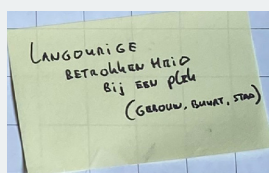 LANGDURIGE
BETROKKENHEID
Bij EEN plek
(GEBOUW, BUURT, STAD)